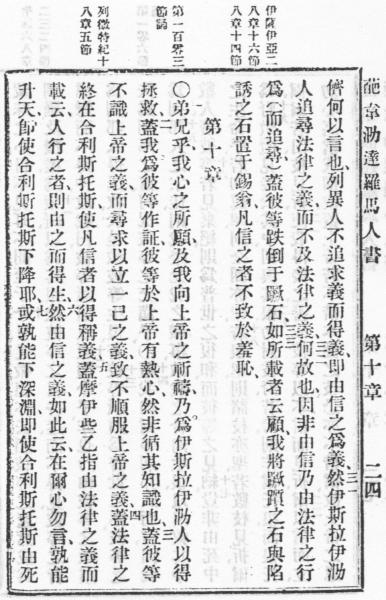 葩韋泐達羅馬人書　第十章　二四
伊薩伊亞二
八章十六節
八章十四節
第一百零三
節誌
列微特紀十
八章五節
儕何以言也、列異人不追求義而得義、即由信之爲義、然伊斯拉伊泐
人追尋法律之義、而不及法律之義、何故也、因非由信、乃由法律之行
爲、(而追尋)蓋彼等跌倒于蹶石、如所載者云、顧我將蹶躓之石、與陷
誘之石、置于錫翁、凡信之者、不致於羞恥、
第十章
○弟兄乎、我心之所願、及我向上帝之祈禱、乃爲伊斯拉伊泐人以得
拯救、蓋我爲彼等作証、彼等於上帝有熱心、然非循其知識也、蓋彼等
不識上帝之義、而尋求以立一己之義、致不順服上帝之義、蓋法律之
終在合利斯托斯、使凡信者以得稱義、蓋摩伊些乙指由法律之義而
載云、人行之者、則由之而得生、然由信之義如此云、在爾心勿言、孰能
升天、即使合利斯托斯下降耶、或孰能下深淵、即使合利斯托斯由死